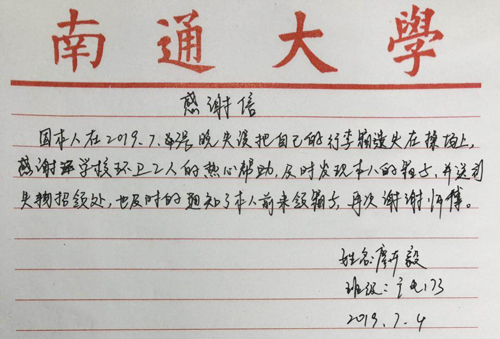 南通大學
感谢信
因本人在2019.7.3号晚失误把自己的行李箱遗失在操场上,
感谢学校环卫工人的热心帮助,及时发现本人的箱子,并送到
失物招领处,也及时的通知了本人前来领箱子,再次谢谢师傅。
姓名:毅
班级:173
2019.7.4